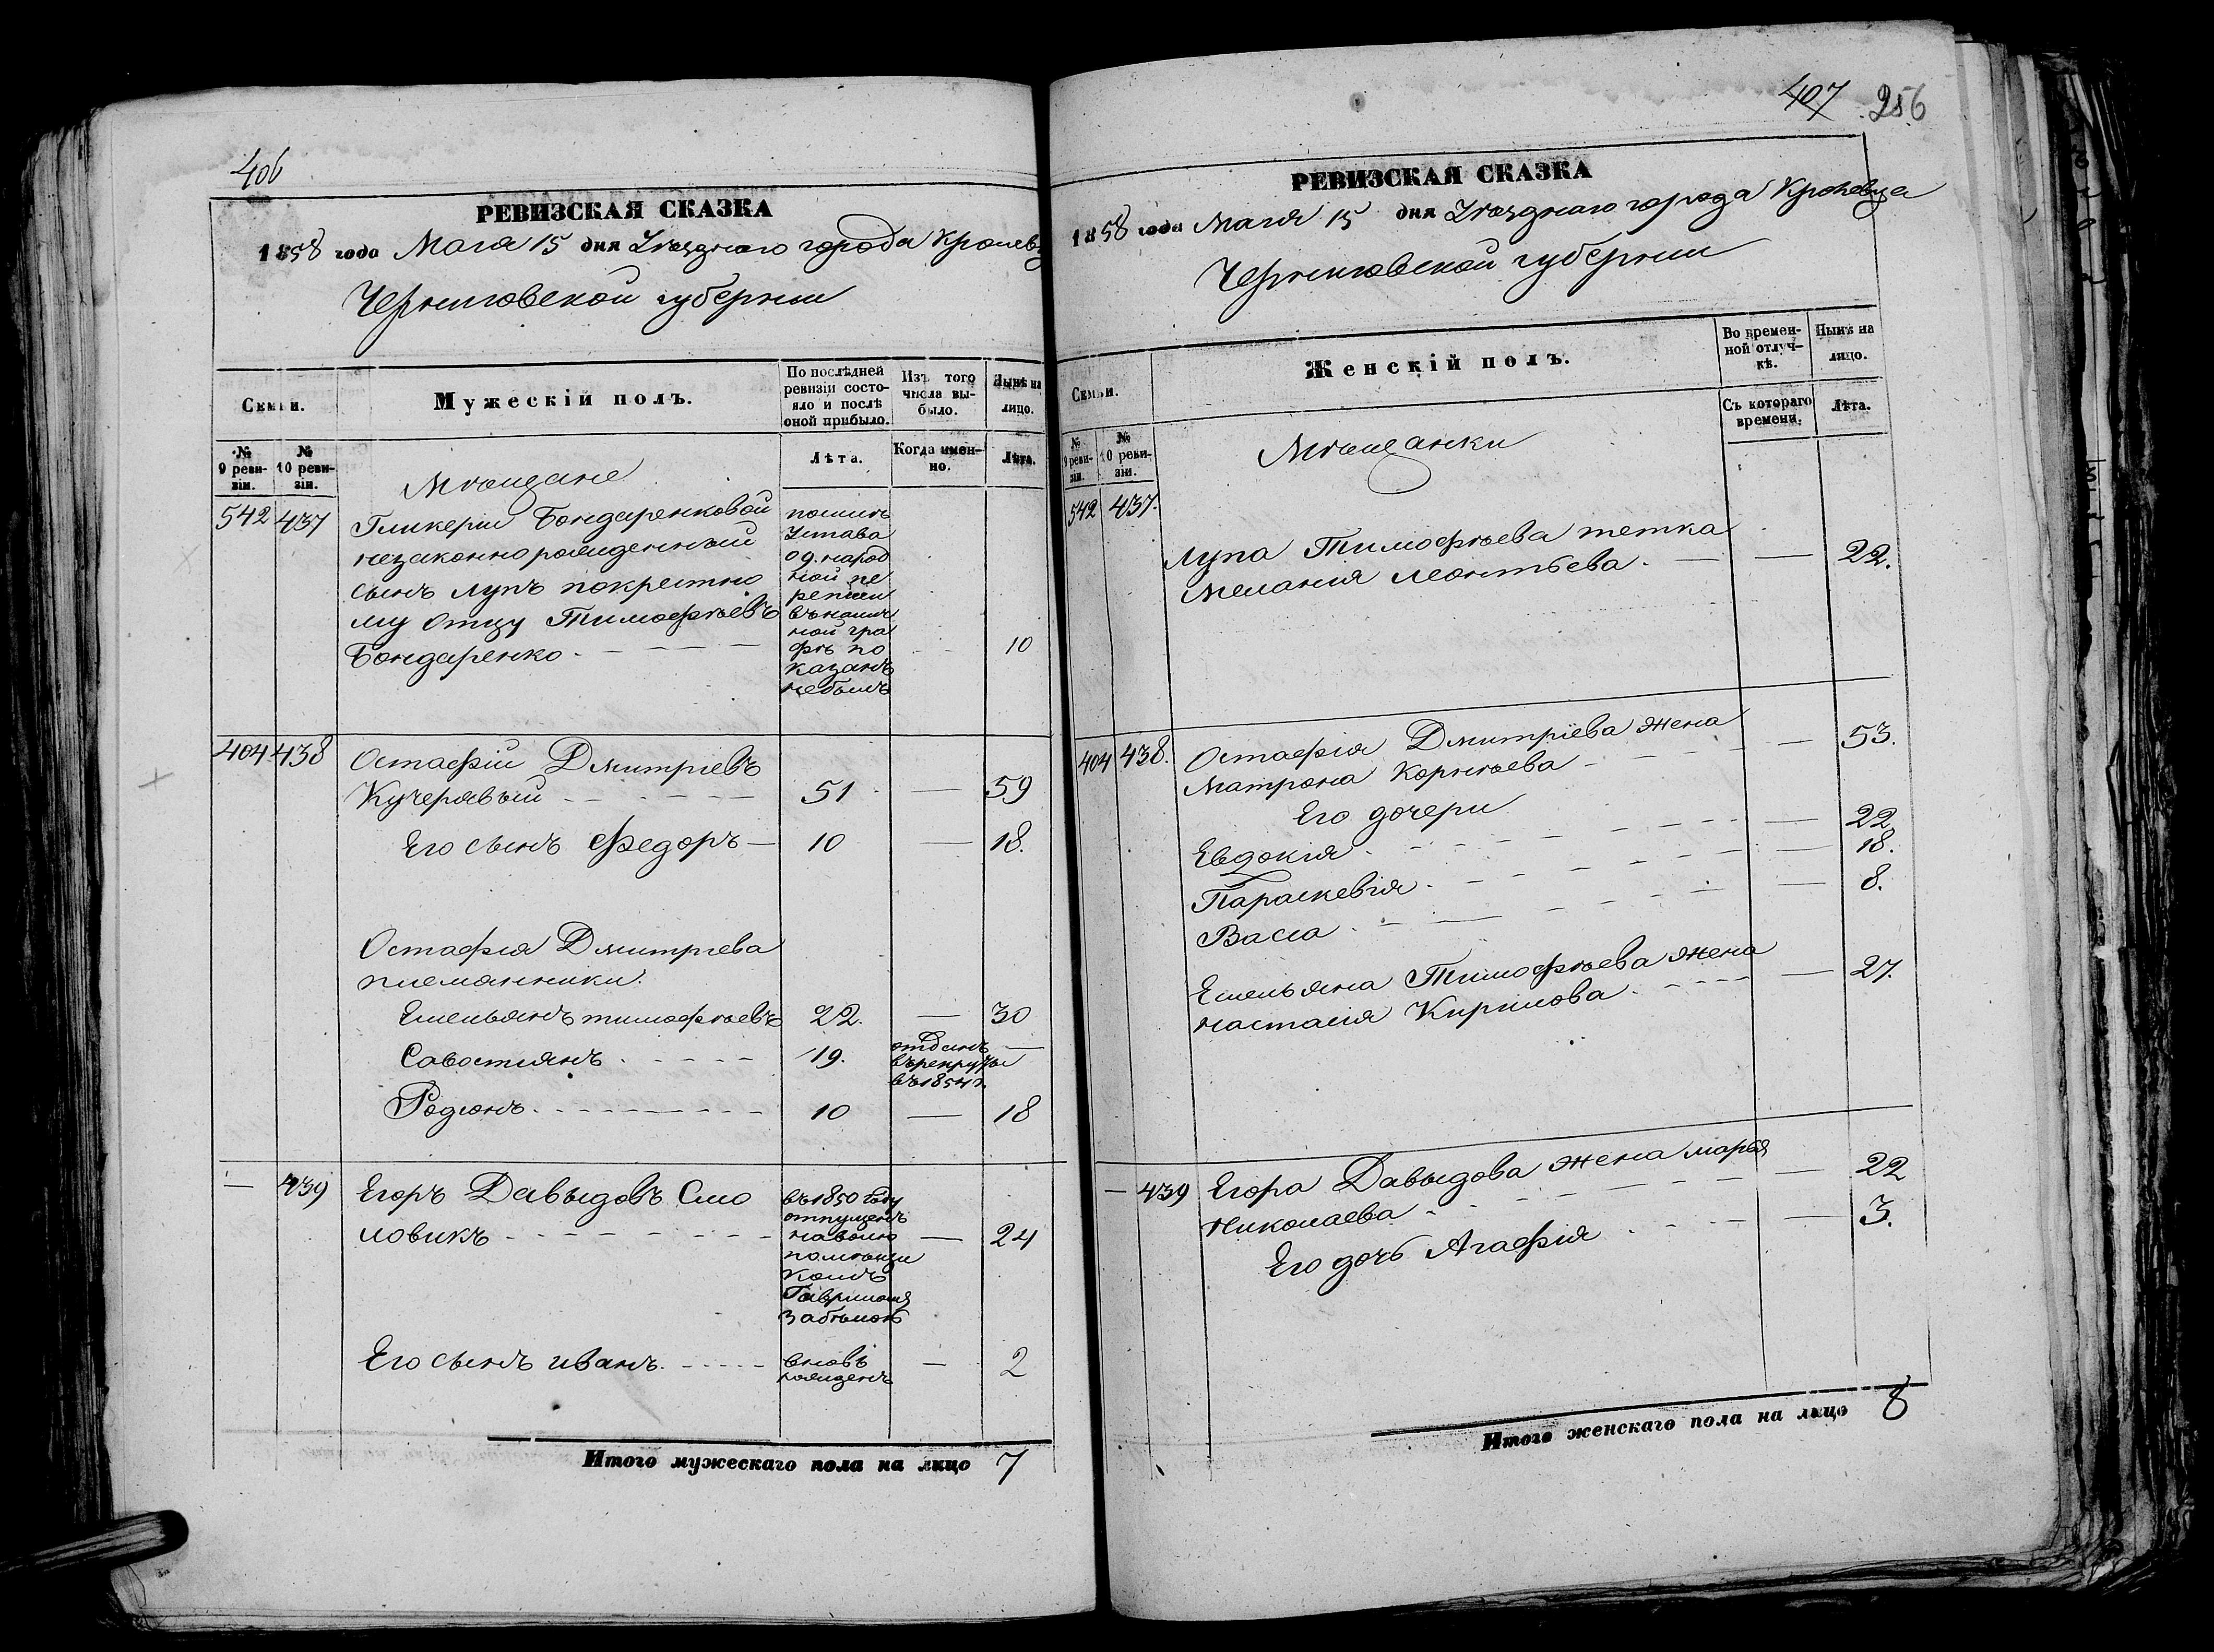 406
РЕВИЗСКАЯ СКАЗКА
1858 года Маія 15 дня Уѣзднаго города Кролевц
Черниговской губерніи
Семьи.
Мужескій полъ.
По послѣдней ревизіи состояло и послѣ оной прибыло.
Изъ того числа выбыло.
Нынѣ на лицо.
№ 9 ревизіи.
№ 10 ревизіи.
Лѣта.
Когда именно.
Лѣта.
Мѣщане
542 437 Гликеріи Бондаренковой
незаконнорожденный
сынъ Лупъ покрестно
му отцу Тимофѣевъ
Бондаренко 10
посилѣ
Устава
о д. народ
ной пе
реписи
въ
ной гра
фѣ по
казанъ
небылъ
404 438 Остафій Дмитріевъ
Кучерявый 51 — 59
Его сынъ Федоръ — 10 — 18.
Остафія Дмитріева
племянники:
Емельянъ тимофѣевъ 22. — 30
Савостіянъ 19. отданъ —
въ рекруты
въ 1854 г.
Родіонъ 10 — 18
— 439 Егоръ Давыдовъ Смо
ловикъ — 24
въ 1850 году
отпущенъ
наволю
помѣщи
комъ
Гавриломъ
Забѣлою
Его сынъ иванъ вновь — 2
рожденъ
Итого мужескаго пола на лицо 7
407 256
РЕВИЗСКАЯ СКАЗКА
1858 года Маія 15 дня Уѣзднаго города Кролевца
Черниговской губерніи
Семьи.
Женскій полъ.
Во временной отлучкѣ.
Нынѣ на лицо.
№ 9 ревизіи.
№ 10 ревизіи.
Съ котораго времени.
Лѣта.
Мѣщанки
542 437.
Лупа Тимофѣева тетка
Меланія Леонтьева. — — 22.
404 438. Остафія Дмитріева жена
Матрона Корнѣева — 53.
Его дочери
Евдокія — 22
Параскевія — 18.
Васса — 8.
Емельяна Тимофѣева жена
настасія Кирилова — 27.
— 439 Егора Давыдова жена марья
николаева — 22
Его дочь Агафія — 3.
Итого женскаго пола на лицо 8